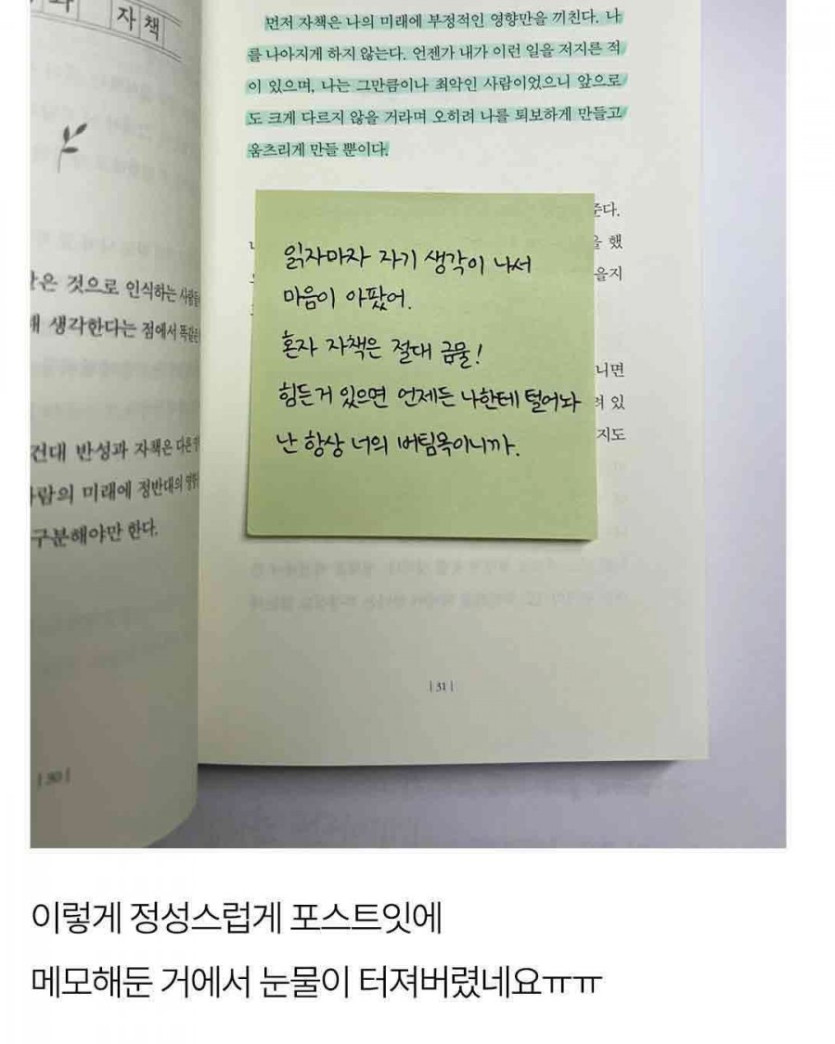 자책
먼저 자책은 나의 미래에 부정적인 영향만을 끼친다. 나
를 나아지게 하지 않는다. 언젠가 내가 이런 일을 저지른 적
이 있으며, 나는 그만큼이나 최악인 사람이었으니 앞으로
도 크게 다르지 않을 거라며 오히려 나를 퇴보하게 만들고
움츠리게 만들 뿐이다.
은 것으로 인식하는 사람들
생각한다는 점에서 똑같은
건대 반성과 자책은 다른
사람의 미래에 정반대의
구분해야만 한다.
|30|
읽자마자 자기 생각이 나서
마음이 아팠어.
혼자 자책은 절대 금물!
힘든거 있으면 언제든 나한테 털어놔
난 항상 너의 버팀목이니까.
했
을지
니면
있
지도
|31|
이렇게 정성스럽게 포스트잇에
메모해둔 거에서 눈물이 터져버렸네요ㅠㅠ